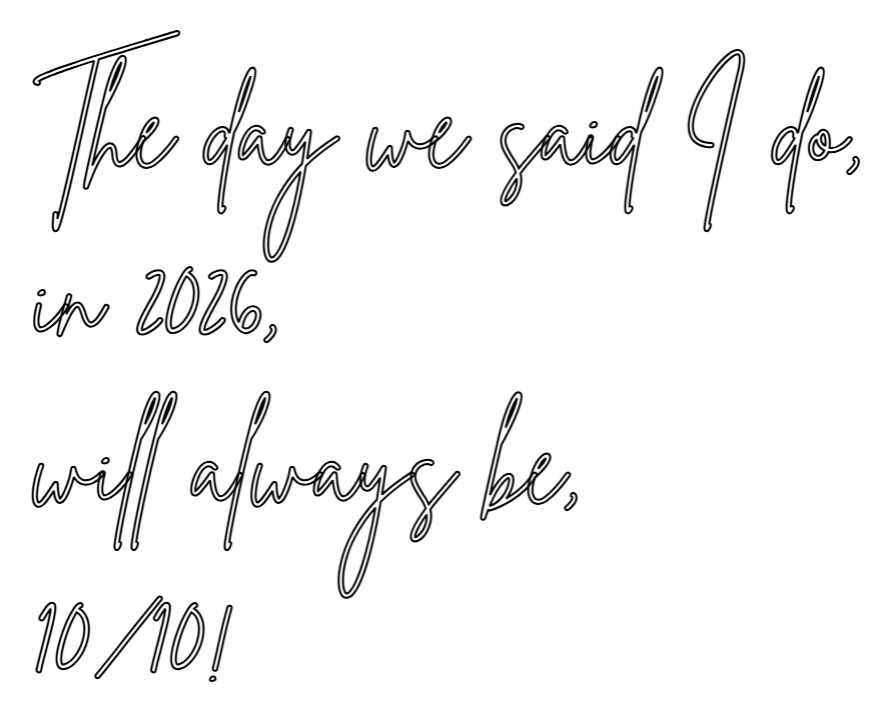 The day we said I do,
in 2026,
will always be,
10/10!